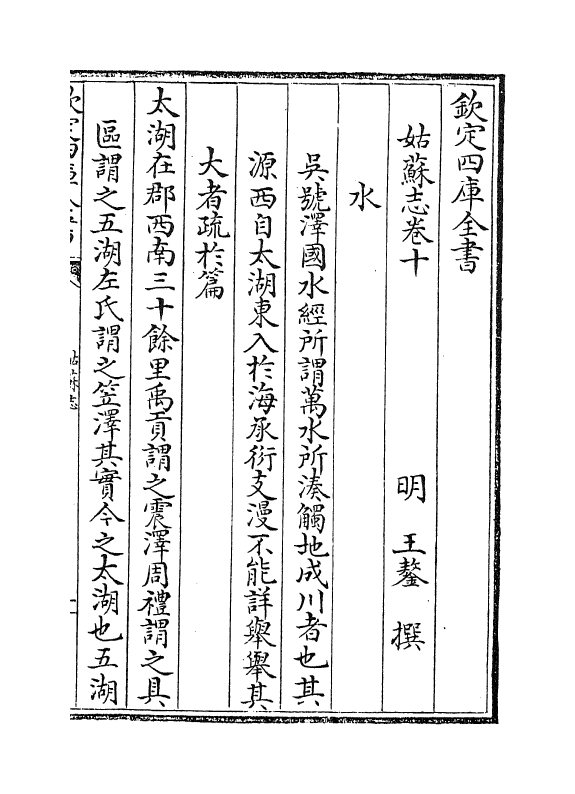 欽定四庫全書
姑蘇志卷十
明 王鏊 撰
水
吳號澤國水經所謂萬水所湊觸地成川者也其
源西自太湖東入於海承衍支漫不能詳舉舉其
大者疏於篇
太湖在郡西南三十餘里禹貢謂之震澤周禮謂之具
區謂之五湖左氏謂之笠澤其實今之太湖也五湖
姑蘇志